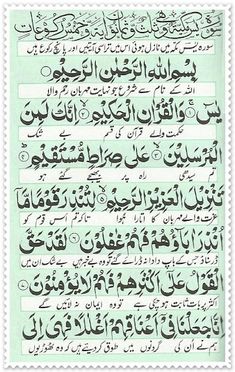 سورة يس مكية وهي ثلث وثمانون اية وخمس ركوعات
سورہ یٰسٓ مکہ میں نازل ہوئی اس میں تراسی آیتیں اور پانچ رکوع ہیں
بِسْمِ اللهِ الرَّحْمٰنِ الرَّحِيْمِ
اللہ کے نام سے شروع جو نہایت مہربان رحم والا
يٰسٓ ﴿١﴾ وَالْقُرْاٰنِ الْحَكِيْمِ ﴿٢﴾ اِنَّكَ لَمِنَ
حکمت والے قرآن کی قسم بے شک
الْمُرْسَلِيْنَ ﴿٣﴾ عَلٰى صِرَاطٍ مُّسْتَقِيْمٍ ﴿٤﴾
تم سیدھی راہ پر بھیجے گئے ہو
تَنْزِيْلَ الْعَزِيْزِ الرَّحِيْمِ ﴿٥﴾ لِتُنْذِرَ قَوْمًا مَّآ
عزت والے مہربان کا اتارا ہوا تاکہ تم اس قوم کو
اُنْذِرَ اٰبَآؤُهُمْ فَهُمْ غٰفِلُوْنَ ﴿٦﴾ لَقَدْ حَقَّ
ڈر سناؤ جس کے باپ دادا نہ ڈرائے گئے تو وہ بے خبر ہیں بے شک ان میں
الْقَوْلُ عَلٰٓى اَكْثَرِهِمْ فَهُمْ لَا يُؤْمِنُوْنَ ﴿٧﴾
اکثر پر بات ثابت ہو چکی ہے تو وہ ایمان نہ لائیں گے
اِنَّا جَعَلْنَا فِيْٓ اَعْنَاقِهِمْ اَغْلٰلًا فَهِيَ اِلَى
ہم نے ان کی گردنوں میں طوق کر دیئے ہیں کہ وہ ٹھوڑیوں